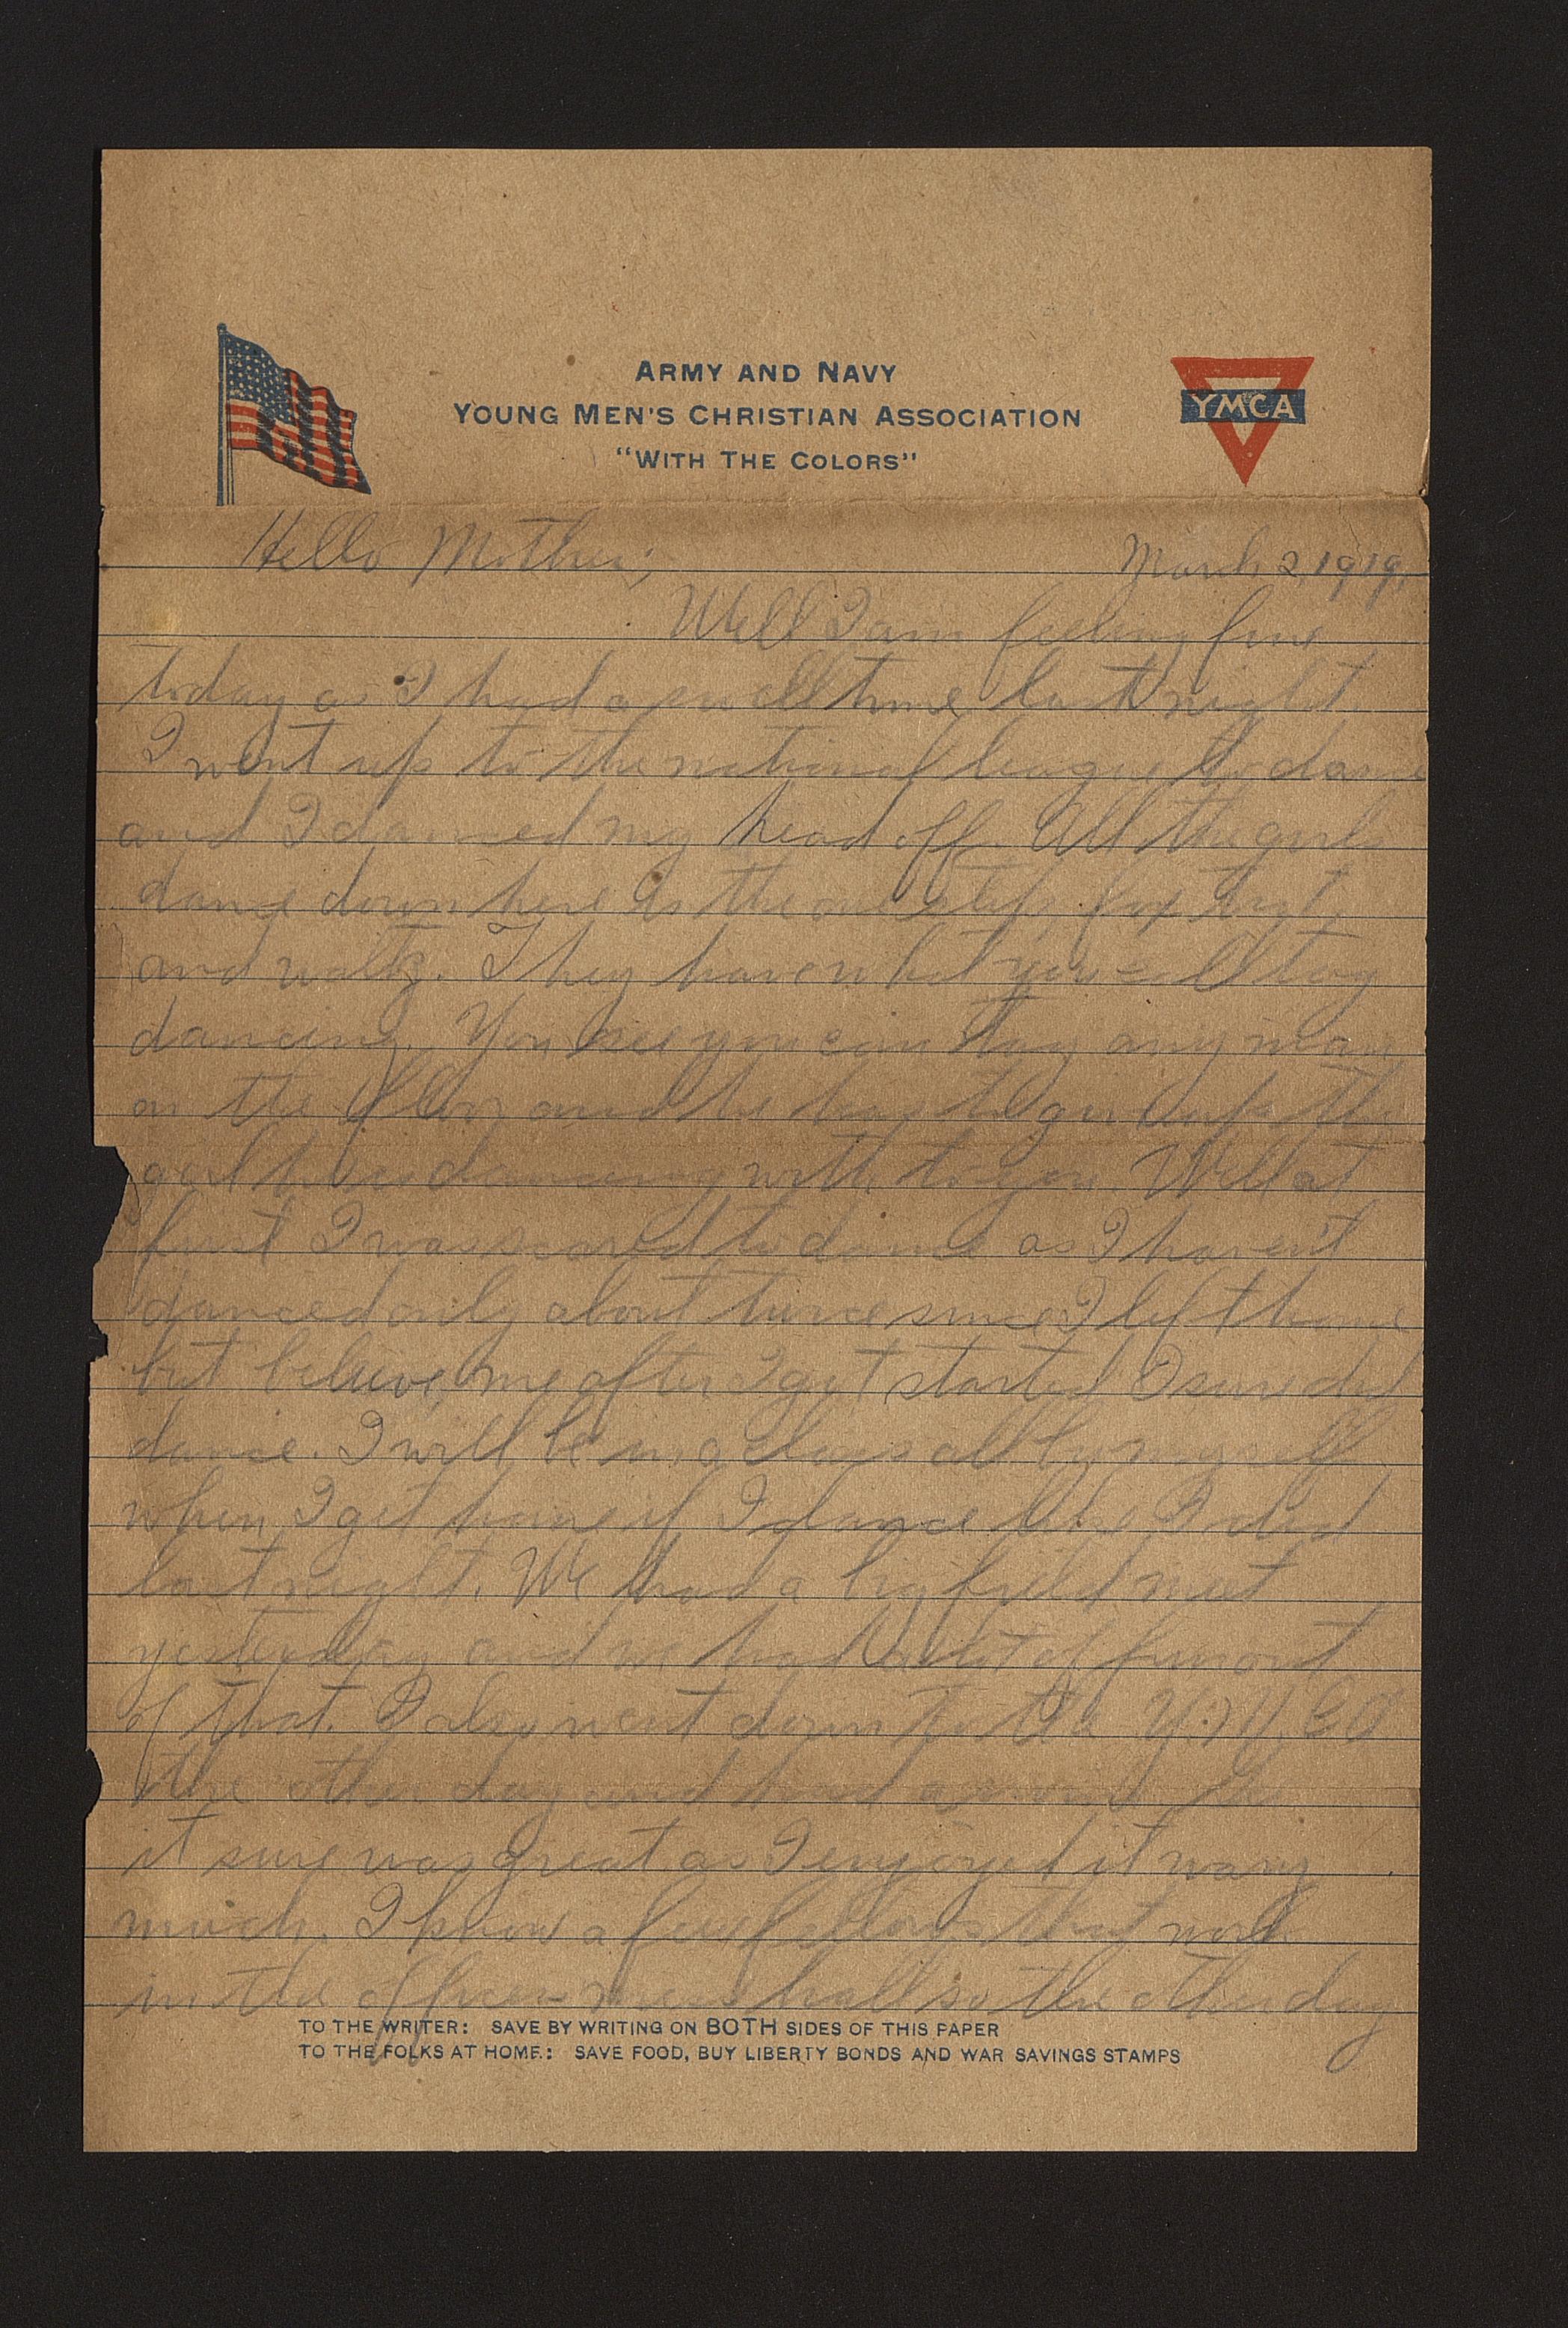 ARMY AND NAVY
YOUNG MEN'S CHRISTIAN ASSOCIATION
"WITH THE COLORS"
YMCA
Hello Mother; March 2, 1919.
Well I am feeling fine
today as I had a swell time last night.
I went up to the national league to dance
and I danced my head off. All the girls
dance down here is the one step, fox trot,
and waltz. They have what you call tag
dancing. You see you can tag any man
on the floor and he has to give up the
girl he is dancing with to you. Well at
first I was scared to dance as I haven't
danced only about twice since I left home
but believe me after I got started I sure did
dance. I will be in a class all by myself
when I get home if I dance like I did
last night. We had a big field meet
yesterday and we had a lot of fun out
of that. I also went down to the Y.M.C.A
the other day and had a
it sure was great as I enjoyed it vary
much. I know a few fellows that work
in the officer mess hall so the other day
TO THE WRITER: SAVE BY WRITING ON BOTH SIDES OF THIS PAPER
TO THE FOLKS AT HOME: SAVE FOOD, BUY LIBERTY BONDS AND WAR SAVINGS STAMPS